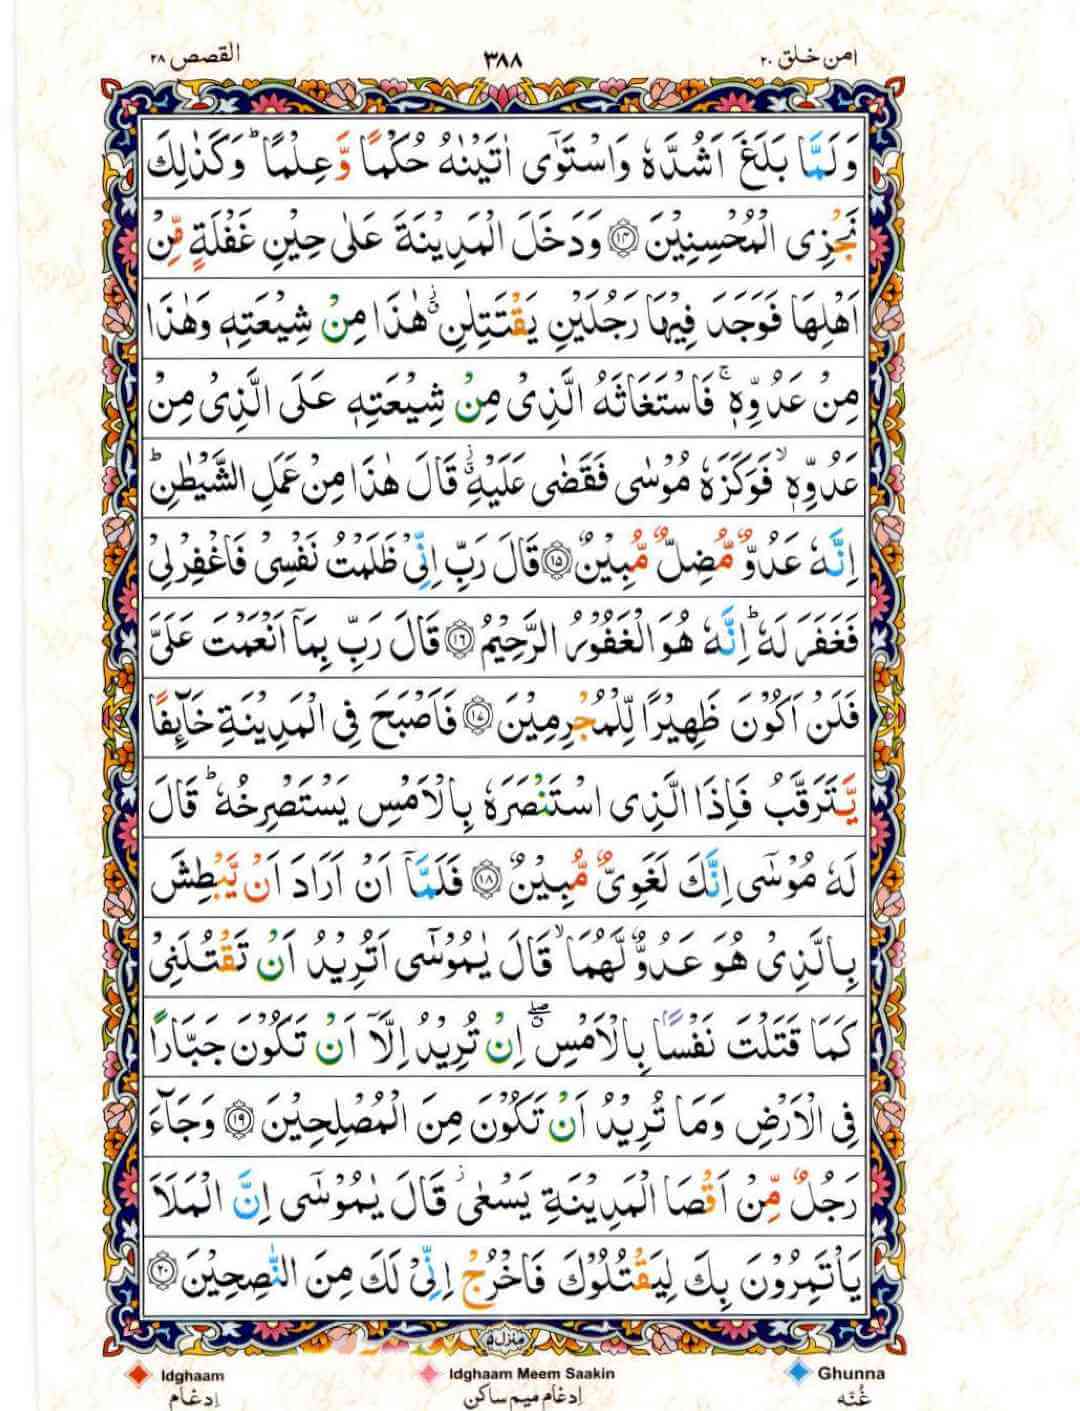 امن خلق ٢٠ ٣٨٨ القصص ٢٨
وَلَمَّا بَلَغَ اَشُدَّهٗ وَاسْتَوٰۤى اٰتَيْنٰهُ حُكْمًا وَّعِلْمًا ؕ وَكَذٰلِكَ
نَجْزِى الْمُحْسِنِيْنَ ۝١٤ وَدَخَلَ الْمَدِيْنَةَ عَلٰى حِيْنِ غَفْلَةٍ مِّنْ
اَهْلِهَا فَوَجَدَ فِيْهَا رَجُلَيْنِ يَقْتَتِلٰنِ ؗ هٰذَا مِنْ شِيْعَتِهٖ وَهٰذَا
مِنْ عَدُوِّهٖ ۚ فَاسْتَغَاثَهُ الَّذِىْ مِنْ شِيْعَتِهٖ عَلَى الَّذِىْ مِنْ
عَدُوِّهٖ ۙ فَوَكَزَهٗ مُوْسٰى فَقَضٰى عَلَيْهِ ؗ قَالَ هٰذَا مِنْ عَمَلِ الشَّيْطٰنِ ؕ
اِنَّهٗ عَدُوٌّ مُّضِلٌّ مُّبِيْنٌ ۝١٥ قَالَ رَبِّ اِنِّىْ ظَلَمْتُ نَفْسِىْ فَاغْفِرْ لِىْ
فَغَفَرَ لَهٗ ؕ اِنَّهٗ هُوَ الْغَفُوْرُ الرَّحِيْمُ ۝١٦ قَالَ رَبِّ بِمَاۤ اَنْعَمْتَ عَلَىَّ
فَلَنْ اَكُوْنَ ظَهِيْرًا لِّلْمُجْرِمِيْنَ ۝١٧ فَاَصْبَحَ فِى الْمَدِيْنَةِ خَآئِفًا
يَّتَرَقَّبُ فَاِذَا الَّذِى اسْتَنْصَرَهٗ بِالْاَمْسِ يَسْتَصْرِخُهٗ ؕ قَالَ
لَهٗ مُوْسٰۤى اِنَّكَ لَغَوِىٌّ مُّبِيْنٌ ۝١٨ فَلَمَّاۤ اَنْ اَرَادَ اَنْ يَّبْطِشَ
بِالَّذِىْ هُوَ عَدُوٌّ لَّهُمَا ۙ قَالَ يٰمُوْسٰۤى اَتُرِيْدُ اَنْ تَقْتُلَنِىْ
كَمَا قَتَلْتَ نَفْسًۢا بِالْاَمْسِ ۖ اِنْ تُرِيْدُ اِلَّاۤ اَنْ تَكُوْنَ جَبَّارًا
فِى الْاَرْضِ وَمَا تُرِيْدُ اَنْ تَكُوْنَ مِنَ الْمُصْلِحِيْنَ ۝١٩ وَجَآءَ
رَجُلٌ مِّنْ اَقْصَا الْمَدِيْنَةِ يَسْعٰى ؗ قَالَ يٰمُوْسٰۤى اِنَّ الْمَلَاَ
يَاْتَمِرُوْنَ بِكَ لِيَقْتُلُوْكَ فَاخْرُجْ اِنِّىْ لَكَ مِنَ النّٰصِحِيْنَ ۝٢٠
منزل ٥
Idghaam Idghaam Meem Saakin Ghunna
اِدغام اِدغام میم ساکن غُنّه